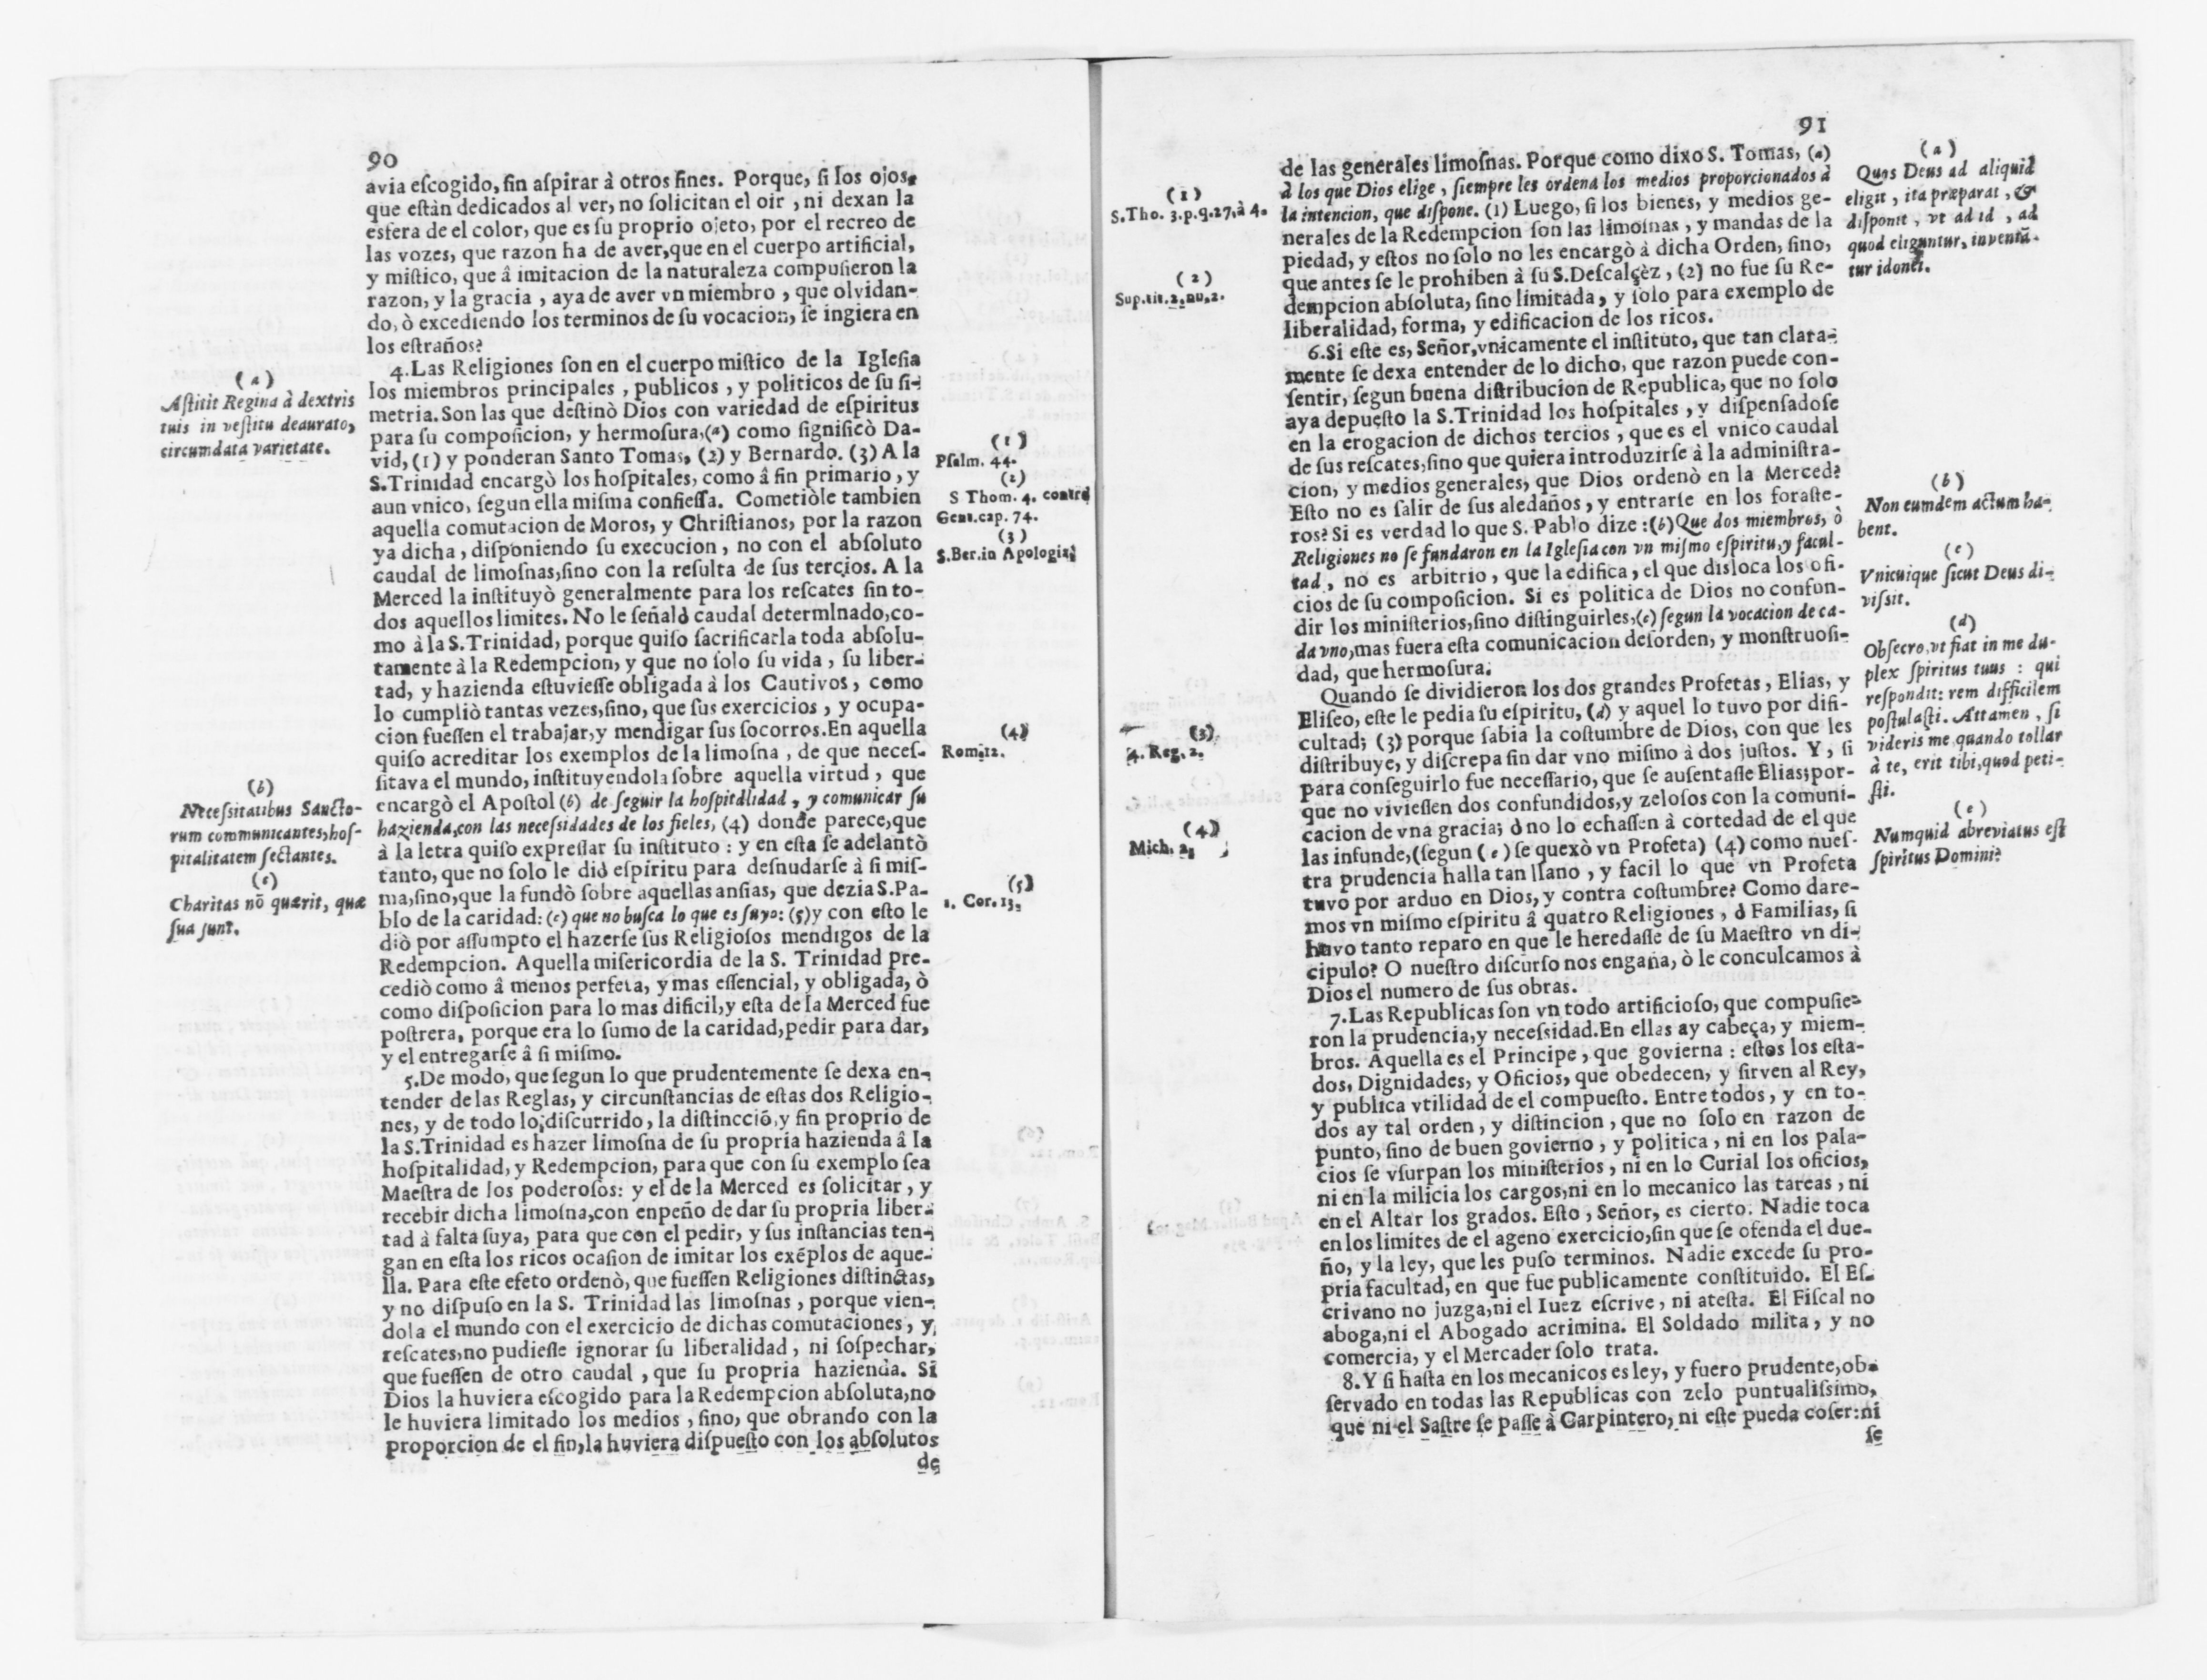 90
avia escogido, sin aspirar à otros fines. Porque, si los ojos,
que estàn dedicados al ver, no solicitan el oir, ni dexan la
esfera de el color, que es su proprio ojeto, por el recreo de
las vozes, que razon ha de aver, que en el cuerpo artificial,
y mistico, que â imitacion de la naturaleza compusieron la
razon, y la gracia, aya de aver vn miembro, que olvidan-
do, ò excediendo los terminos de su vocacion, se ingiera en
los estraños?
4. Las Religiones son en el cuerpo mistico de la Iglesia
los miembros principales, publicos, y politicos de su si-
metria. Son las que destinò Dios con variedad de espiritus
para su composicion, y hermosura, (a) como significò Da-
vid, (1) y ponderan Santo Tomas, (2) y Bernardo. (3) A la
S. Trinidad encargò los hospitales, como â fin primario, y
aun vnico, segun ella misma confiessa. Cometiòle tambien
aquella comutacion de Moros, y Christianos, por la razon
ya dicha, disponiendo su execucion, no con el absoluto
caudal de limosnas, sino con la resulta de sus tercios. A la
Merced la instituyò generalmente para los rescates sin to-
dos aquellos limites. No le señalò caudal determinado, co-
mo à la S. Trinidad, porque quiso sacrificarla toda absolu-
tamente à la Redempcion, y que no solo su vida, su liber-
tad, y hazienda estuviesse obligada à los Cautivos, como
lo cumpliò tantas vezes, sino, que sus exercicios, y ocupa-
cion fuessen el trabajar, y mendigar sus socorros. En aquella
quiso acreditar los exemplos de la limosna, de que neces-
sitava el mundo, instituyendola sobre aquella virtud, que
encargò el Apostol (b) de seguir la hospitalidad, y comunicar su
hazienda, con las necessidades de los fieles, (4) donde parece, que
à la letra quiso expressar su instituto: y en esta se adelantò
tanto, que no solo le diò espiritu para desnudarse à si mis-
ma, sino, que la fundò sobre aquellas ansias, que dezia S. Pa-
blo de la caridad: (c) que no busca lo que es suyo: (5) y con esto le
diò por assumpto el hazerse sus Religiosos mendigos de la
Redempcion. Aquella misericordia de la S. Trinidad pre-
cediò como â menos perfeta, y mas essencial, y obligada, ò
como disposicion para lo mas dificil, y esta de la Merced fue
postrera, porque era lo sumo de la caridad, pedir para dar,
y el entregarse â si mismo.
5. De modo, que segun lo que prudentemente se dexa en-
tender de las Reglas, y circunstancias de estas dos Religio-
nes, y de todo lo discurrido, la distincció, y fin proprio de
la S. Trinidad es hazer limosna de su propria hazienda â la
hospitalidad, y Redempcion, para que con su exemplo sea
Maestra de los poderosos: y el de la Merced es solicitar, y
recebir dicha limosna, con enpeño de dar su propria liber-
tad à falta suya, para que con el pedir, y sus instancias ten-
gan en esta los ricos ocasion de imitar los exéplos de aque-
lla. Para este efeto ordenò, que fuessen Religiones distinctas,
y no dispuso en la S. Trinidad las limosnas, porque vien-
dola el mundo con el exercicio de dichas comutaciones, y
rescates, no pudiesse ignorar su liberalidad, ni sospechar,
que fuessen de otro caudal, que su propria hazienda. Si
Dios la huviera escogido para la Redempcion absoluta, no
le huviera limitado los medios, sino, que obrando con la
proporcion de el fin, la huviera dispuesto con los absolutos
de
(a)
Astitit Regina à dextris
tuis in vestitu deaurato,
circumdata varietate.
(b)
Necessitatibus Sancto-
rum communicantes, hos-
pitalitatem sectantes.
(c)
Charitas nõ quærit, quæ
sua sunt.
(1)
Psalm. 44.
(2)
S Thom. 4. contra
Gent. cap. 74.
(3)
S. Ber. in Apologia.
(4)
Rom. 12.
(5)
1. Cor. 13.
91
de las generales limosnas. Porque como dixo S. Tomas, (a)
à los que Dios elige, siempre les ordena los medios proporcionados à
la intencion, que dispone. (1) Luego, si los bienes, y medios ge-
nerales de la Redempcion son las limosnas, y mandas de la
piedad, y estos no solo no les encargò à dicha Orden, sino,
que antes se le prohiben à su S. Descalçèz, (2) no fue su Re-
dempcion absoluta, sino limitada, y solo para exemplo de
liberalidad, forma, y edificacion de los ricos.
6. Si este es, Señor, vnicamente el instituto, que tan clara-
mente se dexa entender de lo dicho, que razon puede con-
sentir, segun buena distribucion de Republica, que no solo
aya depuesto la S. Trinidad los hospitales, y dispensadose
en la erogacion de dichos tercios, que es el vnico caudal
de sus rescates, sino que quiera introduzirse à la administra-
cion, y medios generales, que Dios ordenò en la Merced?
Esto no es salir de sus aledaños, y entrarse en los foraste-
ros? Si es verdad lo que S. Pablo dize: (b) Que dos miembros, ò
Religiones no se fundaron en la Iglesia con vn mismo espiritu, y facul-
tad, no es arbitrio, que la edifica, el que disloca los ofi-
cios de su composicion. Si es politica de Dios no confun-
dir los ministerios, sino distinguirles, (c) segun la vocacion de ca-
da vno, mas fuera esta comunicacion desorden, y monstruosi-
dad, que hermosura.
Quando se dividieron los dos grandes Profetas, Elias, y
Eliseo, este le pedia su espiritu, (d) y aquel lo tuvo por difi-
cultad; (3) porque sabia la costumbre de Dios, con que les
distribuye, y discrepa sin dar vno mismo à dos justos. Y, si
para conseguirlo fue necessario, que se ausentasse Elias; por-
que no viviessen dos confundidos, y zelosos con la comuni-
cacion de vna gracia; ò no lo echassen à cortedad de el que
las infunde, (segun (e) se quexò vn Profeta) (4) como nues-
tra prudencia halla tan llano, y facil lo que vn Profeta
tuvo por arduo en Dios, y contra costumbre? Como dare-
mos vn mismo espiritu â quatro Religiones, ò Familias, si
huvo tanto reparo en que le heredasse de su Maestro vn di-
cipulo? O nuestro discurso nos engaña, ò le conculcamos à
Dios el numero de sus obras.
7. Las Republicas son vn todo artificioso, que compusie-
ron la prudencia, y necessidad. En ellas ay cabeça, y miem-
bros. Aquella es el Principe, que govierna: estos los esta-
dos, Dignidades, y Oficios, que obedecen, y sirven al Rey,
y publica vtilidad de el compuesto. Entre todos, y en to-
dos ay tal orden, y distincion, que no solo en razon de
punto, sino de buen govierno, y politica, ni en los pala-
cios se vsurpan los ministerios, ni en lo Curial los oficios,
ni en la milicia los cargos, ni en lo mecanico las tareas, ni
en el Altar los grados. Esto, Señor, es cierto. Nadie toca
en los limites de el ageno exercicio, sin que se ofenda el due-
ño, y la ley, que les puso terminos. Nadie excede su pro-
pria facultad, en que fue publicamente constituido. El Es-
crivano no juzga, ni el Iuez escrive, ni atesta. El Fiscal no
aboga, ni el Abogado acrimina. El Soldado milita, y no
comercia, y el Mercader solo trata.
8. Y si hasta en los mecanicos es ley, y fuero prudente, ob-
servado en todas las Republicas con zelo puntualissimo,
que ni el Sastre se passe à Carpintero, ni este pueda coser: ni
se
(1)
S. Tho. 3. p. q. 27. à 4.
(2)
Sup. tit. 2. nu. 2.
(3)
4. Reg. 2.
(4)
Mich. 2.
(a)
Quos Deus ad aliquid
eligit, ita præparat, &
disponit, vt ad id, ad
quod eliguntur, inveniã-
tur idonei.
(b)
Non eumdem actum ha-
bent.
(c)
Vnicuique sicut Deus di-
vissit.
(d)
Obsecro, vt fiat in me du-
plex spiritus tuus: qui
respondit: rem difficilem
postulasti. Attamen, si
videris me, quando tollar
à te, erit tibi, quod peti-
sti.
(e)
Numquid abreviatus est
spiritus Domini?